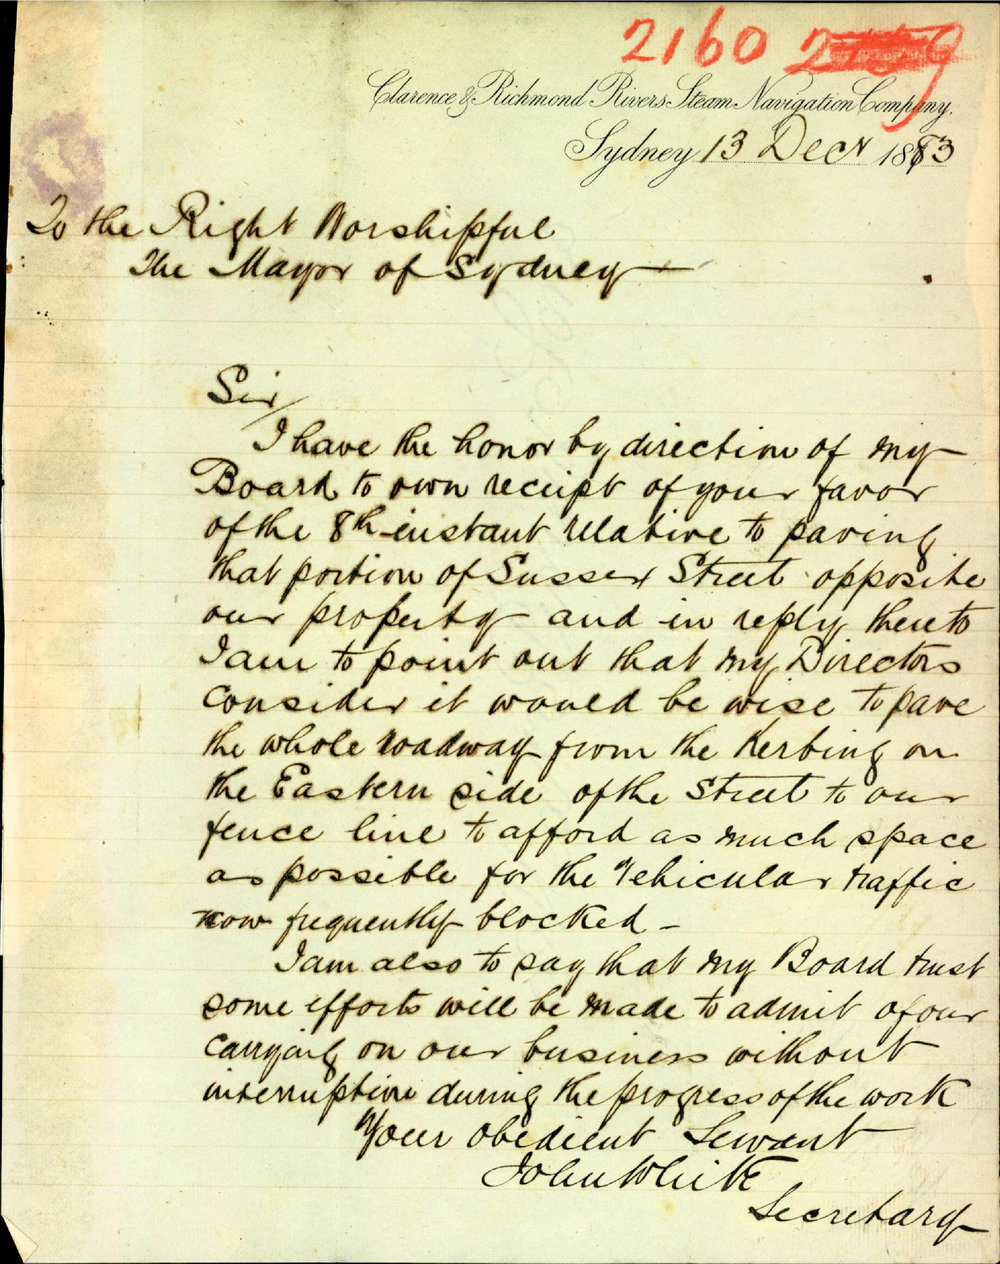 2160 2159
Clarence & Richmond Rivers Steam Navigation Company.
Sydney 13 Decr 1883
To the Right Worshipful
The Mayor of Sydney
Sir/
I have the honor by direction of my
Board to own receipt of your favor
of the 8th instant relative to paving
that portion of Sussex Street opposite
our property and in reply thereto
I am to point out that my Directors
consider it would be wise to pave
the whole roadway from the Kerbing on
the Eastern side of the Street to our
fence line to afford as much space
as possible for the Vehicular traffic
now frequently blocked -
I am also to say that my Board trust
some efforts will be made to admit of our
carrying on our business without
interruption during the progress of the work
Your obedient Servant
John White
Secretary